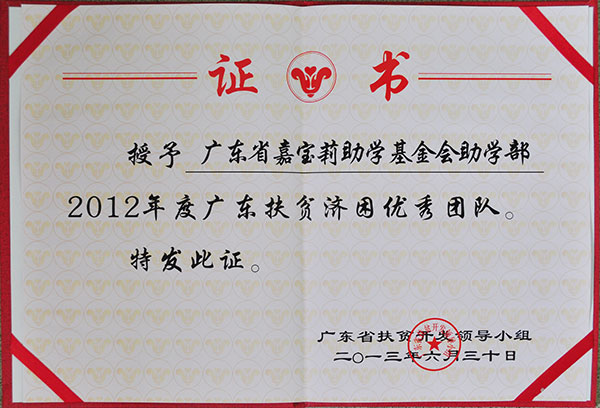 证书
授予 广东省嘉宝莉助学基金会助学部
2012年度广东扶贫济困优秀团队。
特发此证。
广东省扶贫开发领导小组
二〇一三年六月三十日